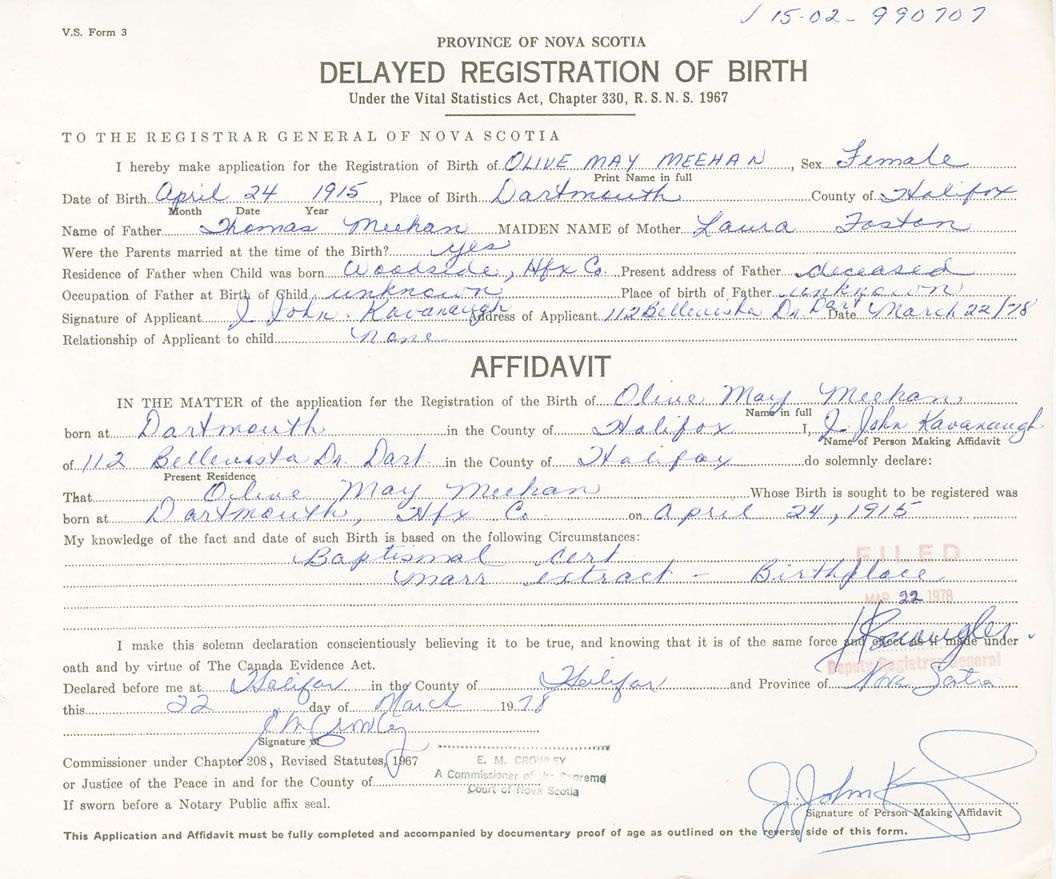 15-02-990707
V.S. Form 3
PROVINCE OF NOVA SCOTIA
DELAYED REGISTRATION OF BIRTH
Under the Vital Statistics Act, Chapter 330, R.S.N.S. 1967
TO THE REGISTRAR GENERAL OF NOVA SCOTIA
I hereby make application for the Registration of Birth of OLIVE MAY MEEHAN, Sex Female
Print Name in full
Date of Birth April 24 1915, Place of Birth Dartmouth County of Halifax
Month Date Year
Name of Father Thomas Meehan MAIDEN NAME of Mother Laura Foston
Were the Parents married at the time of the Birth? yes
Residence of Father when Child was born Woodside, Hfx Co. Present address of Father deceased
Occupation of Father at Birth of Child unknown Place of birth of Father unknown
Signature of Applicant J John Kavanaugh Address of Applicant 112 Bellevista Dr. Dart Date March 22/78
Relationship of Applicant to child none
AFFIDAVIT
IN THE MATTER of the application for the Registration of the Birth of Olive May Meehan
Name in full
born at Dartmouth in the County of Halifax I, J. John Kavanaugh
Name of Person Making Affidavit
of 112 Bellevista Dr. Dart. in the County of Halifax do solemnly declare:
Present Residence
That Olive May Meehan Whose Birth is sought to be registered was
born at Dartmouth, Hfx Co on April 24, 1915
My knowledge of the fact and date of such Birth is based on the following Circumstances:
Baptismal Cert
marr extract - Birthplace
FILED
MAR 22 1978
I make this solemn declaration conscientiously believing it to be true, and knowing that it is of the same force and effect as if made under
oath and by virtue of The Canada Evidence Act.
Deputy Registrar General
Declared before me at Halifax in the County of Halifax and Province of Nova Scotia
this 22 day of March 1978
E M Crowley
Signature of
Commissioner under Chapter 208, Revised Statutes, 1967
E. M. CROWLEY
A Commissioner of the Supreme
Court of Nova Scotia
or Justice of the Peace in and for the County of
If sworn before a Notary Public affix seal.
J. John K
Signature of Person Making Affidavit
This Application and Affidavit must be fully completed and accompanied by documentary proof of age as outlined on the reverse side of this form.